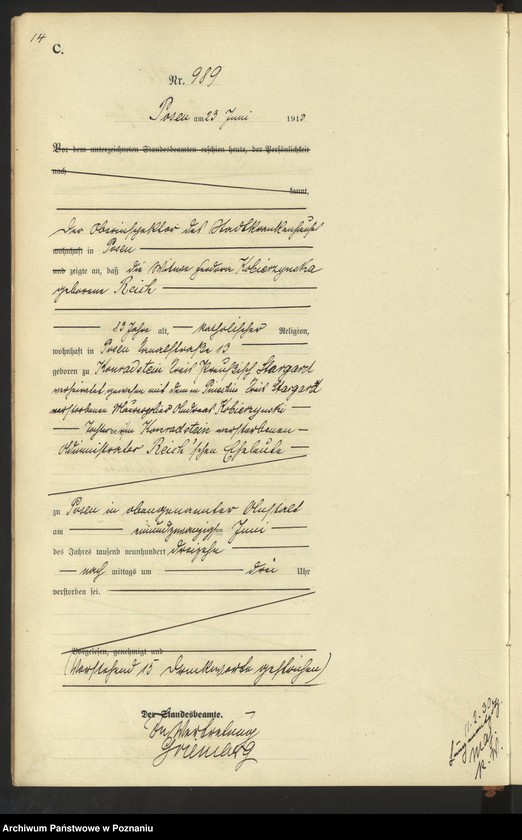 14
C.
Nr. 989
Posen am 23 Juni 1913
Vor dem unterzeichneten Standesbeamten erschien heute, der Persönlichkeit
nach
kannt,
Der Oberinspektor des Stadtkrankenhauses
wohnhaft in Posen
und zeigte an, daß die Witwe Feodora Kobierzynska
geborene Reich
83 Jahre alt, katholischer Religion,
wohnhaft in Posen 13
geboren zu Konradstein Kreis Preußisch Stargard
verheiratet gewesen mit dem in Kreis Stargard
verstorbenen Andreas Kobierzynski
Tochter der in Konradstein verstorbenen
Administrator Reich'schen Eheleute
zu Posen in obengenannter Anstalt
am einundzwanzigsten Juni
des Jahres tausend neunhundert dreizehn
nach mittags um drei Uhr
verstorben sei.
Vorgelesen, genehmigt und
(Vorstehend 15 Druckworte gestrichen)
Der Standesbeamte.
In Vertretung
Archiwum Państwowe w Poznaniu